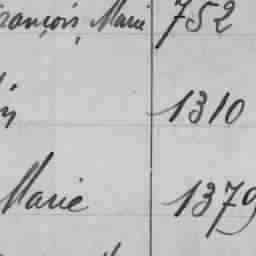 François Marie 752
1310
Marie 1379